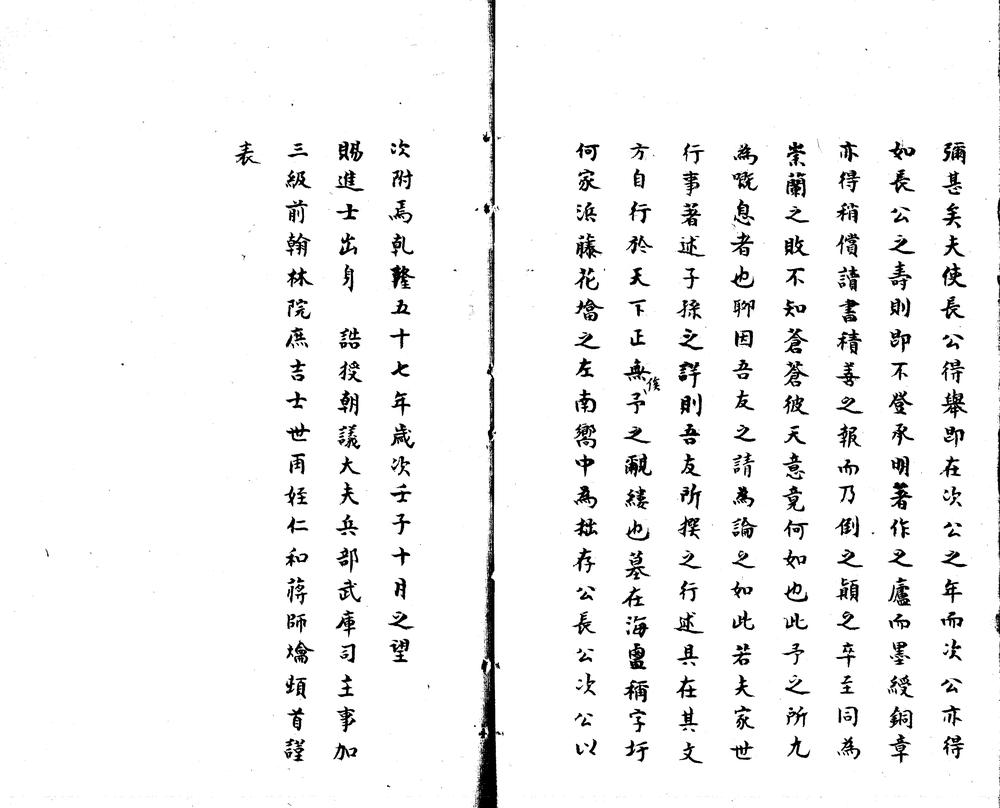 彌甚矣夫使長公得舉即在次公之年而次公亦得
如長公之壽則即不登承明著作之廬而墨綬銅章
亦得稍償讀書積善之報而乃倒之顛之卒至同為
崇蘭之敗不知蒼蒼彼天意竟何如也此予之所九
為嘅息者也聊因吾友之請為論之如此若夫家世
行事著述子孫之詳則吾友所撰之行述具在其文
方自行於天下正無俟予之覼縷也墓在海鹽稱字圩
何家浜藤花壋之左南嚮中為拙存公長公次公以
次附焉乾隆五十七年歲次壬子十月之望
賜進士出身 誥授朝議大夫兵部武庫司主事加
三級前翰林院庶吉士世再姪仁和蔣師爚頓首謹
表